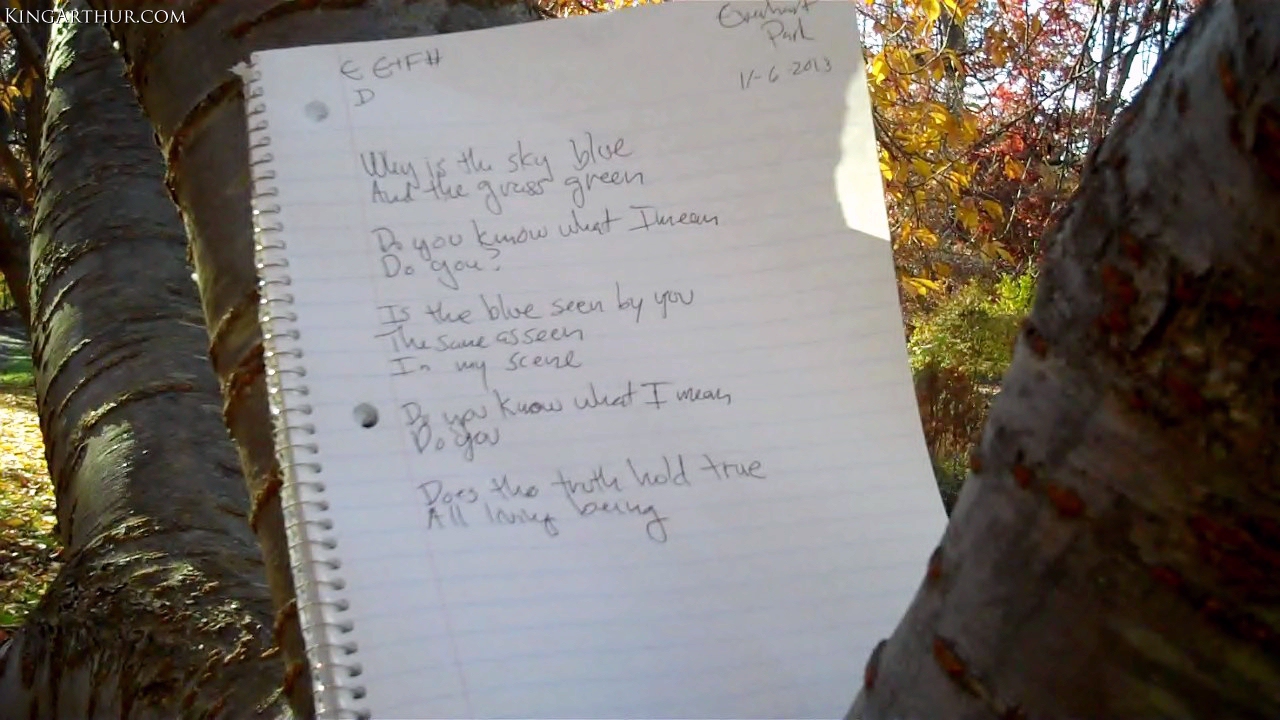 KingArthur.com
Park
11-6-2013
D
Why is the sky blue
And the grass green
Do you know what I mean
Do you?
Is the blue seen by you
The same as seen
In my scene
Do you know what I mean
Do you
Does the truth hold true
All living being